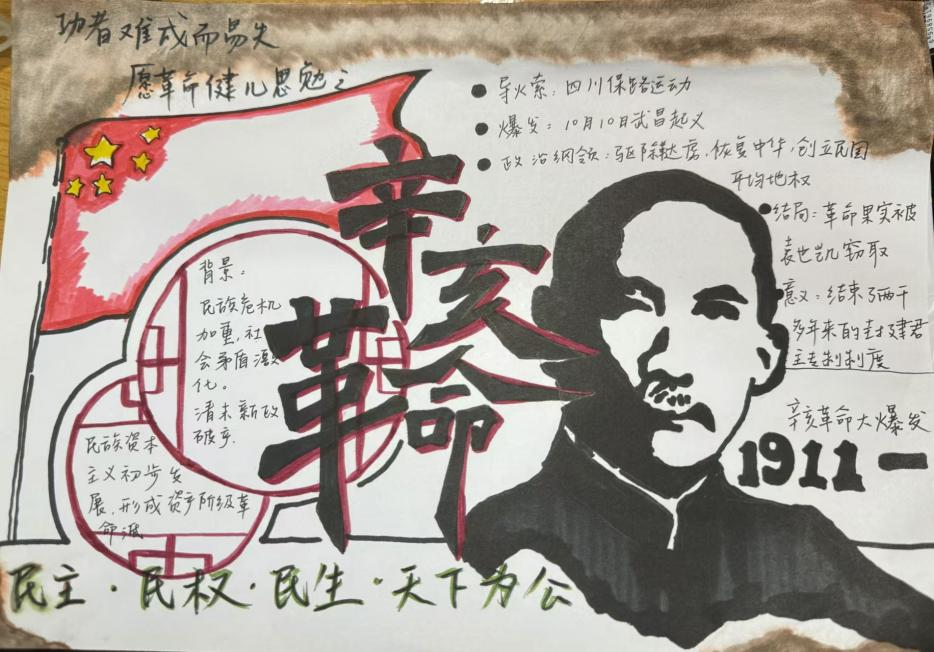 功者难成而易失
愿革命健儿思勉之
辛亥
革命
背景：
民族危机
加重，社
会矛盾激
化。
清末新政
破产.
民族资本
主义初步发
展，形成资产阶级革
命派
导火索：四川保路运动
爆发：10月10日武昌起义
政治纲领：驱除鞑虏，恢复中华，创立民国
平均地权
结局：革命果实被
袁世凯窃取
意义：结束了两千
多年来的封建君
主专制制度
辛亥革命大爆发
1911一
民主·民权·民生·天下为公